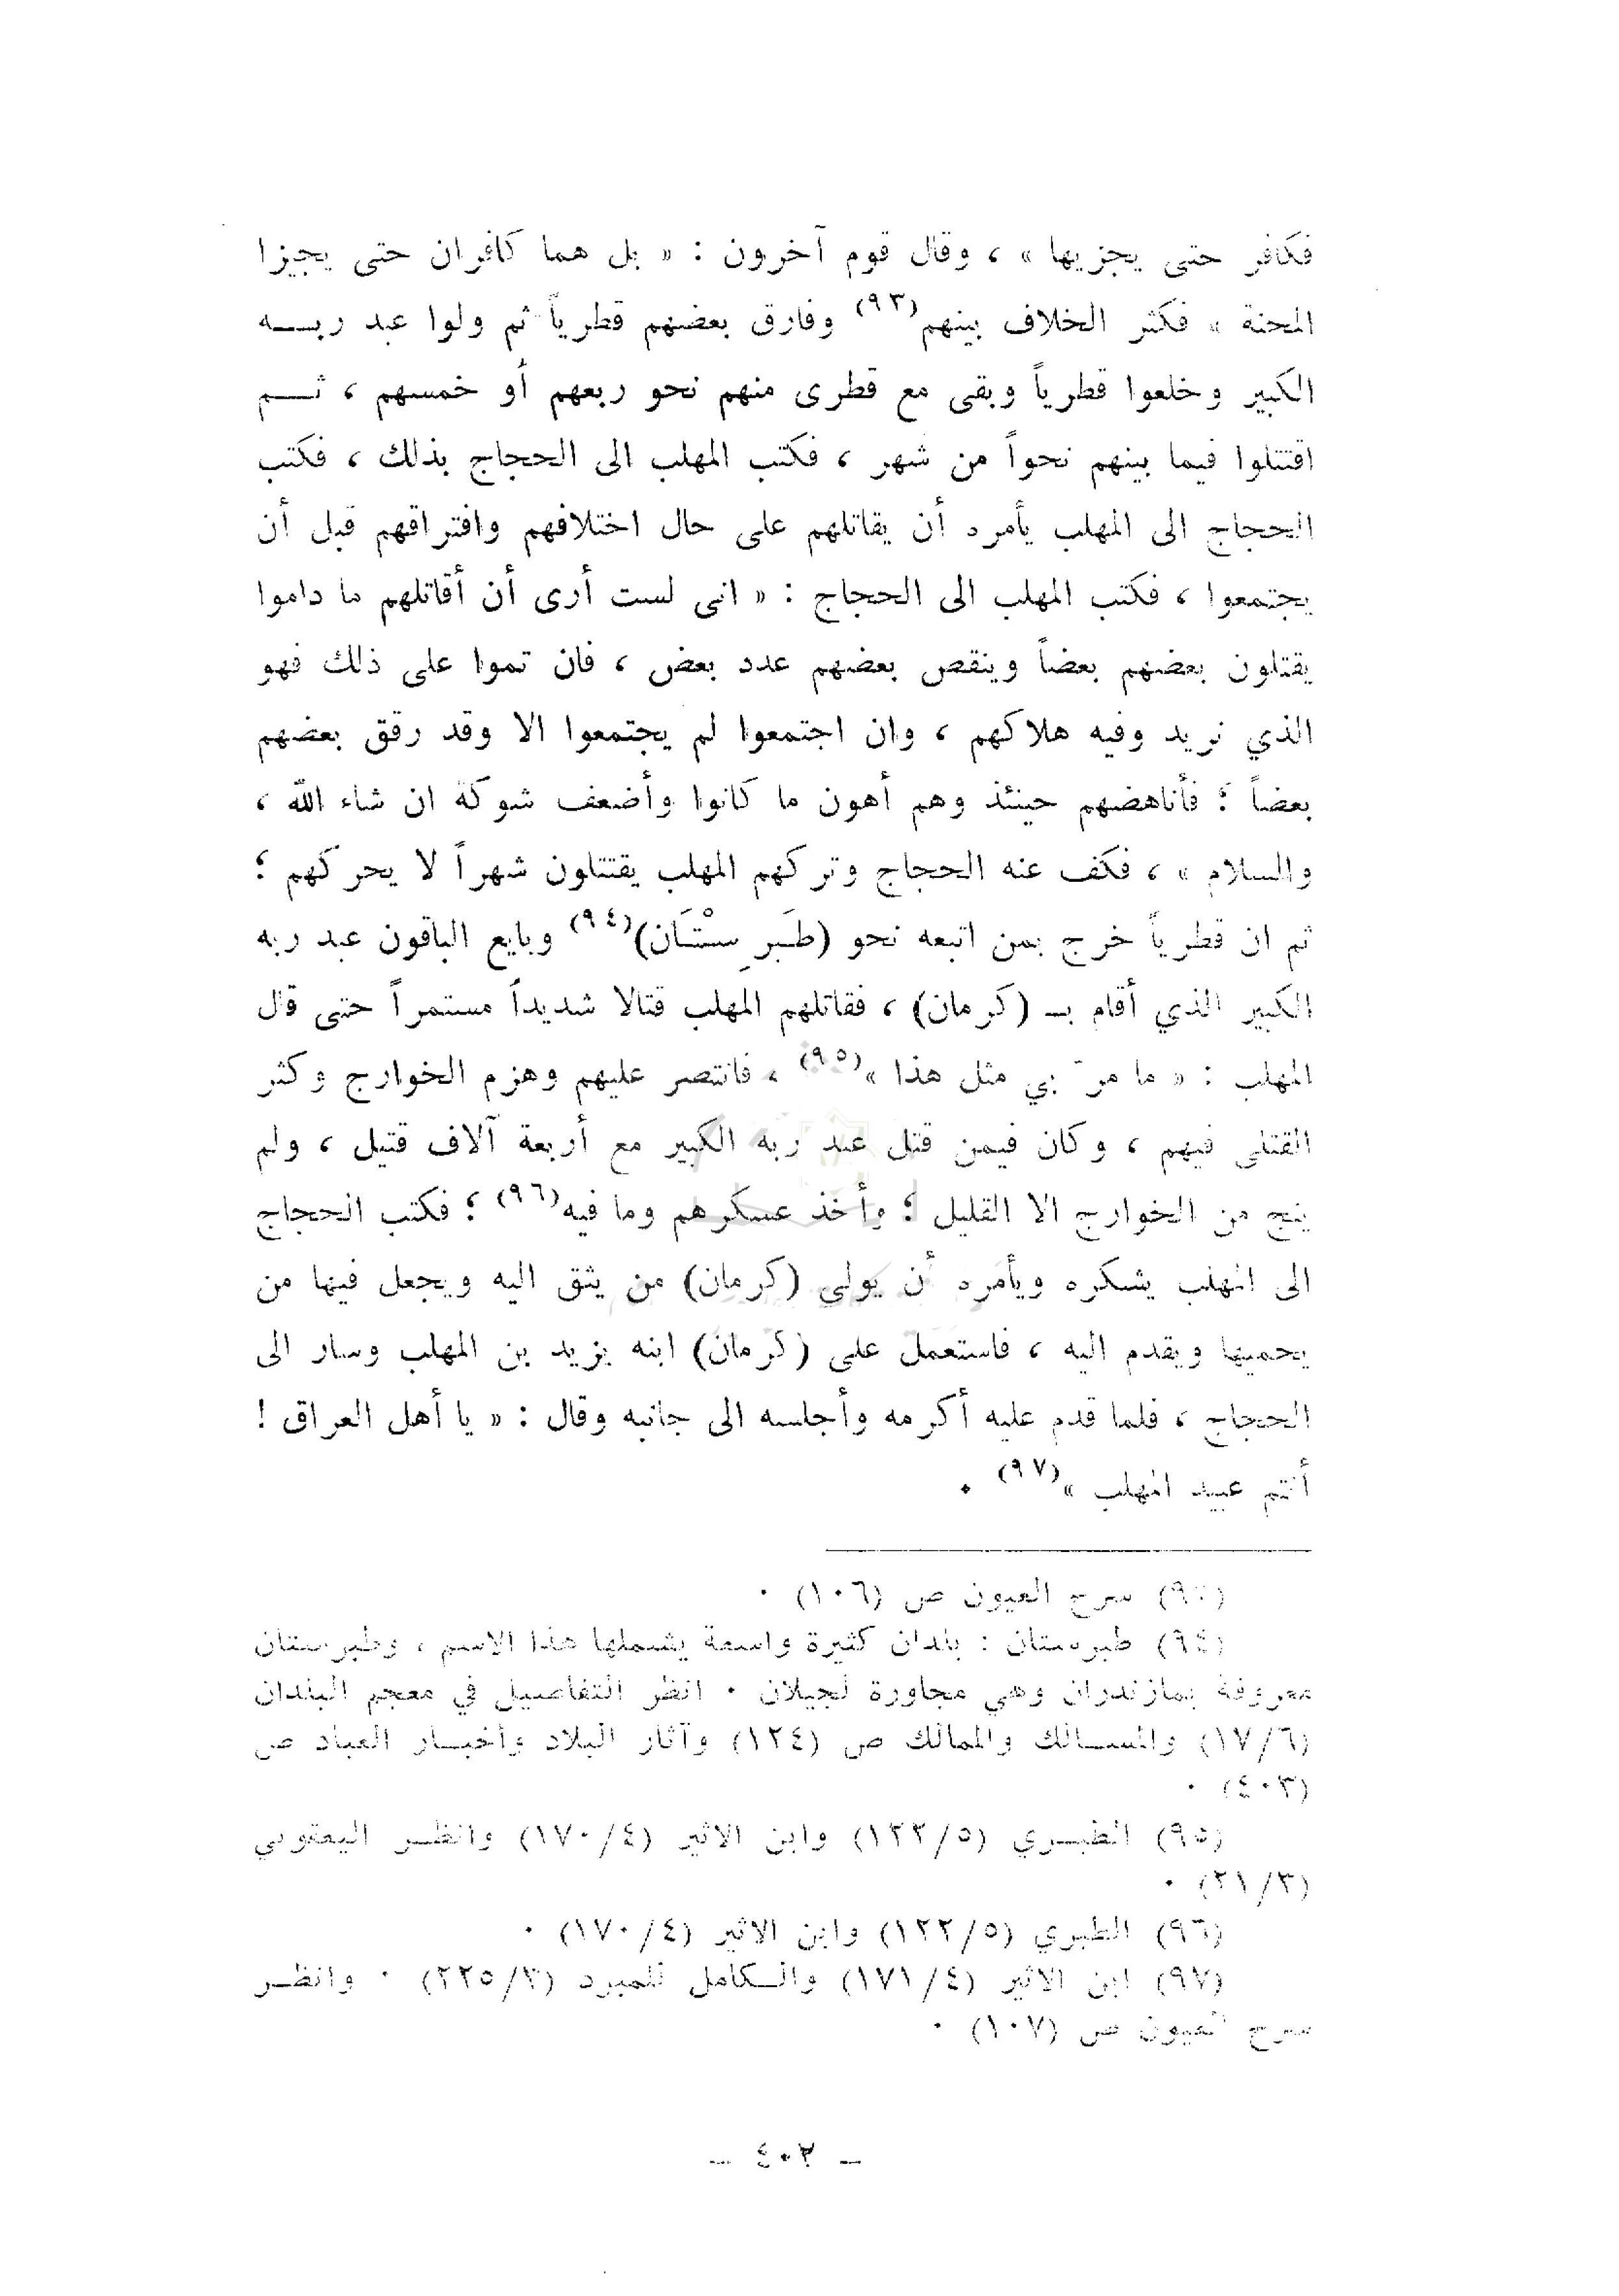 فكافر حتى يجزيها » ، وقال قوم آخرون : « بل هما كافران حتى يجيزا
المحنة » فكثر الخلاف بينهم(٩٣) وفارق بعضهم قطرياً ثم ولوا عبد ربـــه
الكبير وخلعوا قطرياً وبقى مع قطرى منهم نحو ربعهم أو خمسهم ، ثـــم
اقتتلوا فيما بينهم نحواً من شهر ، فكتب المهلب الى الحجاج بذلك ، فكتب
الحجاج الى المهلب يأمره أن يقاتلهم على حال اختلافهم وافتراقهم قبل أن
يجتمعوا ، فكتب المهلب الى الحجاج : « انى لست أرى أن أقاتلهم ما داموا
يقتلون بعضهم بعضاً وينقص بعضهم عدد بعض ، فان تموا على ذلك فهو
الذي نريد وفيه هلاكهم ، وان اجتمعوا لم يجتمعوا الا وقد رقق بعضهم
بعضاً ؛ فأناهضهم حينئذ وهم أهون ما كانوا وأضعف شوكة ان شاء الله ،
والسلام » ، فكف عنه الحجاج وتركهم المهلب يقتتلون شهراً لا يحركهم ؛
ثم ان قطرياً خرج بمن اتبعه نحو (طَبَرِسْتَان)(٩٤) وبايع الباقون عبد ربه
الكبير الذي أقام بـ (كرمان) ، فقاتلهم المهلب قتالا شديداً مستمراً حتى قال
المهلب : « ما مرّ بي مثل هذا »(٩٥) ، فانتصر عليهم وهزم الخوارج وكثر
القتلى فيهم ، وكان فيمن قتل عبد ربه الكبير مع أربعة آلاف قتيل ، ولم
ينج من الخوارج الا القليل ؛ وأخذ عسكرهم وما فيه(٩٦) ؛ فكتب الحجاج
الى المهلب يشكره ويأمره أن يولى (كرمان) من يثق اليه ويجعل فيها من
يحميها ويقدم اليه ، فاستعمل على (كرمان) ابنه يزيد بن المهلب وسار الى
الحجاج ، فلما قدم عليه أكرمه وأجلسه الى جانبه وقال : « يا أهل العراق !
أنتم عبيد المهلب »(٩٧) .
(٩٣) سرح العيون ص (١٠٦) .
(٩٤) طبرستان : بلدان كثيرة واسعة يشملها هذا الاسم ، وطبرستان
معروفة بمازندران وهي مجاورة لجيلان . انظر التفاصيل في معجم البلدان
(١٧/٦) والمســالك والممالك ص (١٢٤) وآثار البلاد وأخبــار العباد ص
(٤٠٣) .
(٩٥) الطبــري (١٢٢/٥) وابن الاثير (١٧٠/٤) وانظــر اليعقوبي
(٢١/٣) .
(٩٦) الطبري (١٢٢/٥) وابن الاثير (١٧٠/٤) .
(٩٧) ابن الاثير (١٧١/٤) والــكامل للمبرد (٢٢٥/٣) . وانظــر
سرح العيون ص (١٠٧) .
– ٤٠٢ –